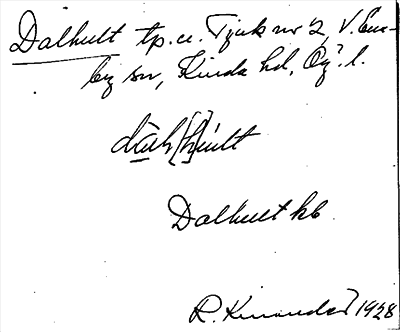 Dalhult tp. u. Tjuk nr 2, V. Ene-
by sn, Kinda hd, Ög. l.
dɑ̄lₕ[h]ult
Dalhult kb
R. Kinander 1928